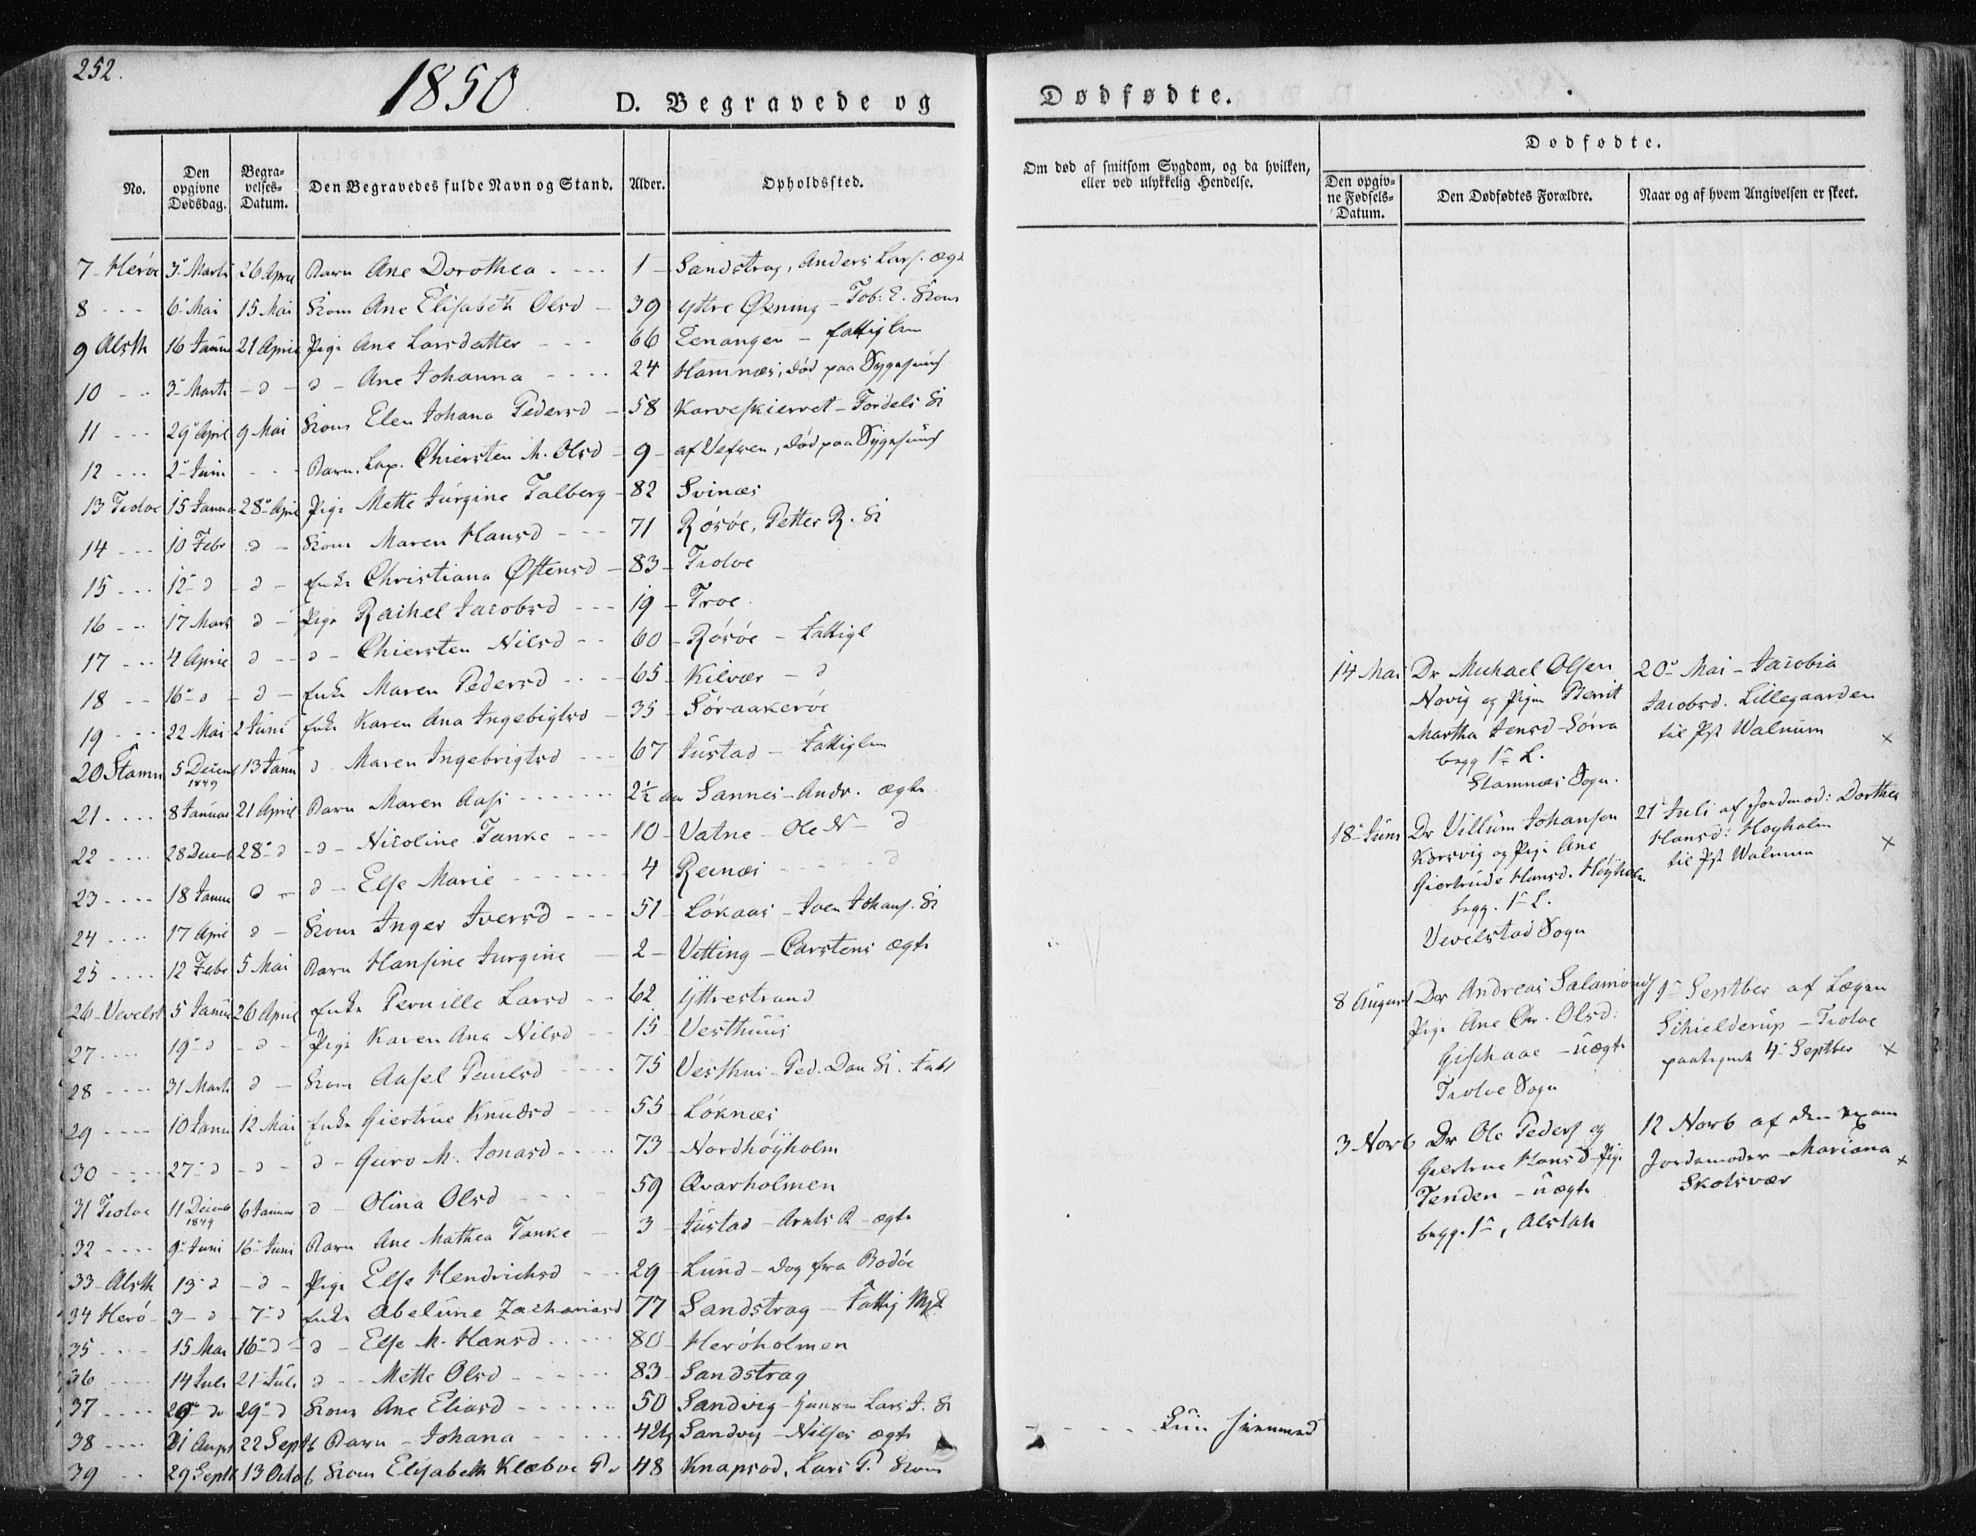 252.
1850
D. Begravede og
Dødfødte.
No.
Den opgivne Dødsdag.
Begravelses-Datum.
Den Begravedes fulde Navn og Stand.
Alder.
Opholdssted.
Om død af smitsom Sygdom, og da hvilken, eller ved ulykkelig Hendelse.
Dødfødte.
Den opgivne Fødsels-Datum.
Den Dødfødtes Forældre.
Naar og af hvem Angivelsen er skeet.
7 - Herøe 3 Marts 26 April Barn Ane Dorothea - 1 - Sandstrag, Anders Lars. ægt
8 - - - 6 Mai 15 Mai Kone Ane Elisabeth Olsd - 39 Yttre Øxning - Tob. E. Kone
9 Alsth 16 Januar 21 April Pige Ane Larsdatter - - - 66 Lenanger - fattiglem
10 - - - 3 Marts - d - d - Ane Johanna - - - - 24 Hamnæs, død paa Sygehuus
11 - - - 29 April 9 Mai Kone Elen Johana Pedersd - 58 Karveskierret - Fordels K
12 - - - 2 Juni - - - Barn. Lap. Chiersten M. Olsd - 9 - af Vefsen, død paa Sygehuus
13 Tiøtøe 15 Januar 28 April Pige Mette Jürgine Falberg - 82 Svinæs
14 - - - 10 Febr - d - Kone Maren Hansd - - - 71 Røsøe, Petter R. K
15 - - - 12 - d - d - Enke Christiana Østensd - 83 - Tiøtøe
16 - - - 17 Marts d - Pige Rachel Jacobsd - - - 19 - Troe
17 - - - 4 April d - - d - Chiersten Nilsd - - 60 - Røsøe - Fattigl
18 - - - 16 - d - d - Enke Maren Pedersd - - - 65 - Kilvær - d
19 - - - 22 Mai 2 Juni Enke Karen Ana Ingebrigtsd - 35 - Søraakerøe
20 Stamn 5 Decemb 1849 13 Janu d Maren Ingebrigtsd - - - 67 Justad - Fattiglem
21 - - - - 8 Januar 21 April Barn Maren Aase - - - - 2½ aar Sannes - Andr. ægte
22 - - - - 28 Decemb 28 - d - d - Nicoline Tanke - - - 10 - Vatne - Ole N - d
23 - - - - 18 Janu d - d - Else Marie - - - - 4 Reinæs - - - d
24 - - - - 17 April d - Kone Inger Iversd - - - 51 - Løkaas - Iven Johans. K
25 - - - - 12 Febr 5 Mai Barn Hansine Jurgine - 2 - Vitting - Carstens ægte
26 - Vevelst 5 Janua 26 April Enke Pernille Larsd - - 62 Yttrestrand
27 - - - - 19 - d - d - Pige Karen Ana Nilsd - - 15 - Vesthuus
28 - - - - 31 Marts d - Kone Aasel Poulsd - - - 75 Vesthus - Ped. Dan K.
29 - - - - 10 Janu 12 Mai Enke Giertrue Knudsd - - - 55 - Løknæs
30 - - - - 27 - d - d - d - Guro M. Jonasd - - - - 73 - Nordhöyholm
31 Tiøtøe 11 Decemb 1849 6 Januar d - Olina Olsd - - - 59 Qvarholmen
32 - - - - 9 Juni 16 Juni Barn Ane Mathea Tanke - 3 - Justad - Arnts R - ægte
33 - Alsth 13 - d - d - Pige Else Hendrichsd - - 29 - Lund - Dog fra Bodöe
34 Herø - 3 - d - 7 - d Enke Abelüne Zachariasd 77 Sandstrag - Fattig
35 - - - - 15 Mai 16 - d - d - Else M. Hansd - - - - 80 - Herøholmen
36 - - - - 14 Juli 21 Juli d - - Mette Olsd - - - - 83 - Sandstrag
37 - - - - 26 - d 29 - d Kone Ane Eliasd - - - - 50 Sandvig - Lars J. K
38 - - - - 31 August 22 Septb Barn - Johana - - - - Sandvig - Nilses ægte
39 - - 29 Septb 13 Octob Kone Elisabeth Klæboe 48 - Knapsød, Lars P. Kone
14 Mai Dr Michael Olsen
Novig og Pigen Berrit
Martha Jensd - Sörra
begg 1ste L.
Stamnæs Sogn.
20 Mai - Jacobia
Jacobsd. Lillegaarden
til Pst Walnum ×
18 Juni Dr Villum Johansen
Korsvig og Pige Ane
Giertrude Hansd. Höyholm
begg. 1ste L.
Vevelstad Sogn
21 Juli af Jordmod: Dorthea
Hansd: Höyholm
til Pst Walnum ×
8 August Dr Andreas Salamons
Pige Ane Chr. Olsd:
- uægte
Tiøtøe Sogn
9 Septber af Lægen
Schielderup - Tiøtøe
paategnet 4 Septber ×
3 Novb Dr Ole Peders og
Giertrue Hansd - Pige
Tenden - uægte
begg. 1ste, Alstah
12 Novb af den exam
Jordemoder - Mariana
Skotsvær ×